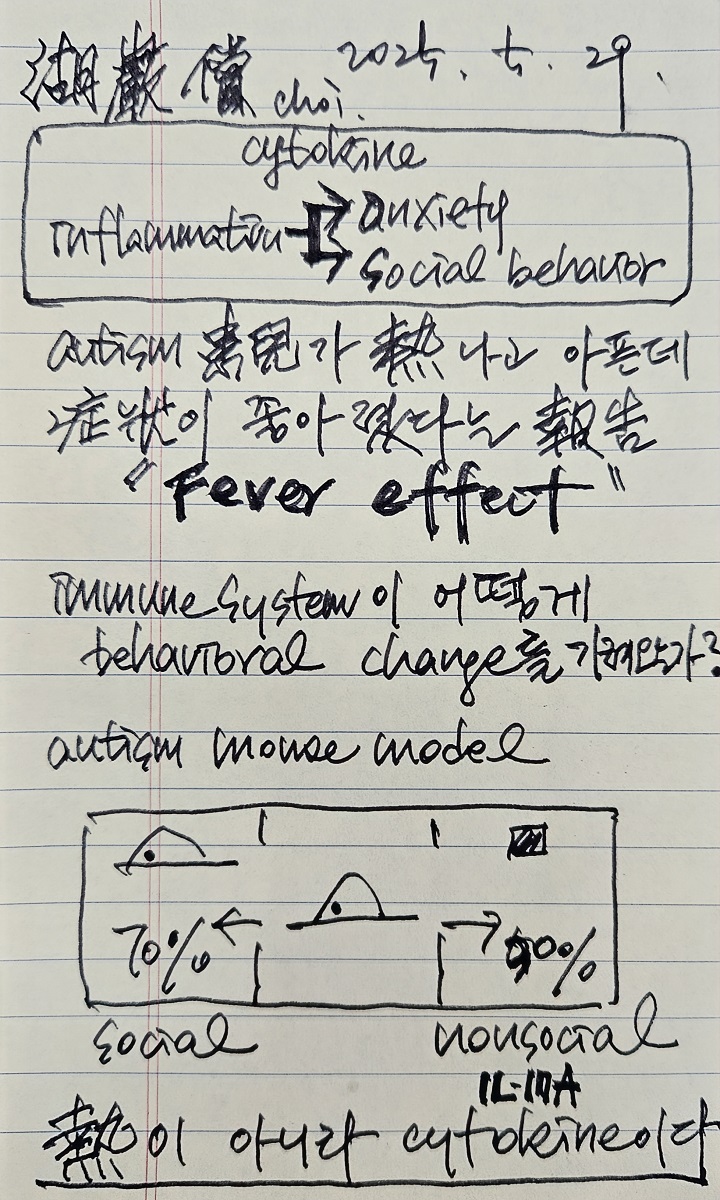 湖巖償 choi. 2025. 5. 29.
cytokine
inflammation
anxiety
social behavior
autism 患兒가 熱 나고 아픈데
症状이 좋아졌다는 報告
"Fever effect"
immune system이 어떻게
behavioral change를
autism mouse model
70%
social nonsocial
IL-17A
熱이 아니라 cytokine이다